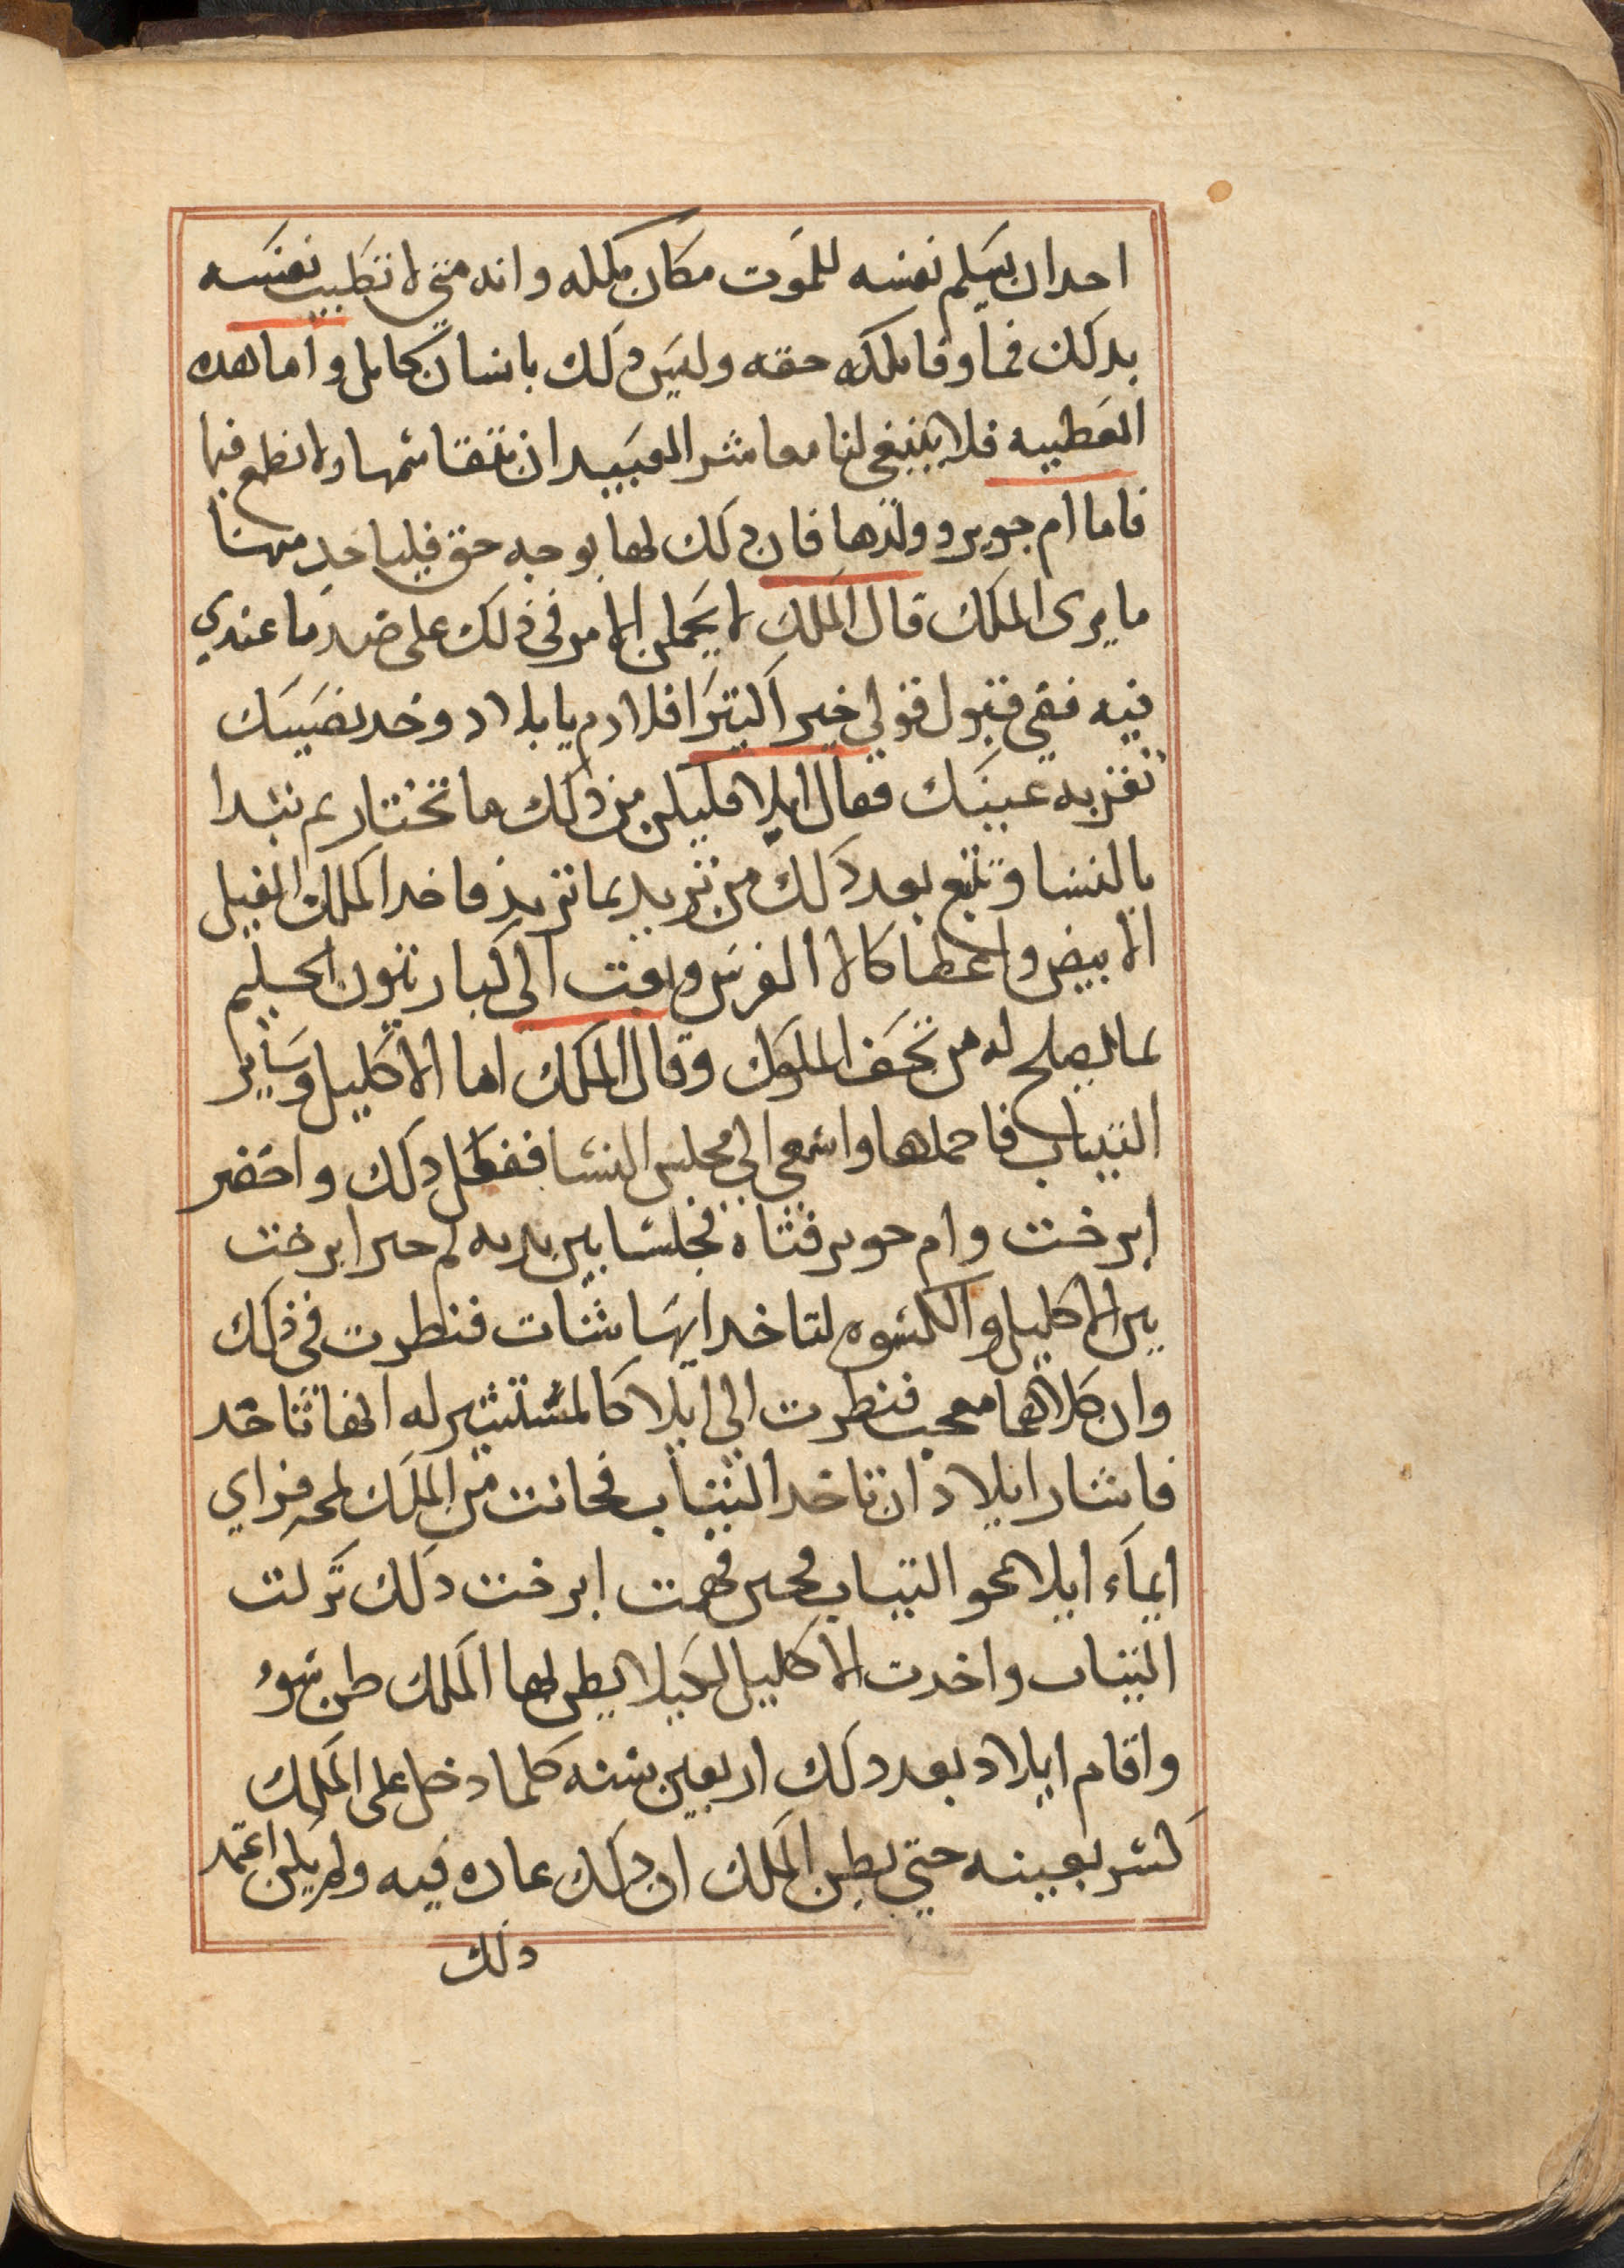 احدان يسلم نفسه للموت مكان ملكه وانه متى لا تطيب نفسه
بدلك فما وفا ملكه حقه وليس دلك بانسان كامل واما هده
العطييه فلا ينبغي لنا معاشر العبيد ان نتقاسمها ولا نطمع فيها
فاما ام جوير وولدها فان دلك لها بوجه حق فلياخد منها
ما يرى الملك قال الملك لا يحملن الامر في ذلك على ضد ما عندي
فيه ففي قبول قولي خير اكيرا فلادم يا بلاد وخد نصيبك
تقر به عينك فقال ايلا فليكن من دلك ما تختار ثم نبدا
بالنسا وتتبع بعد دلك من تريد بما تريد فاخد الملك الفيل
الابيض واعطا كالا الفرس وبعت الى كبارتيون الحليم
بما يصلح له من تحف الملوك وقال الملك اما الاكليل وساير
التياب فاحملها واسعى الي مجلس النسا ففعل دلك واحضر
ابرخت وام حوير فتاه فجلسا بين يديه ثم خير ابرخت
بين الاكليل والكسوه لتاخد ايها شات فنظرت في ذلك
وان كلاهما معجب فنظرت الى ايلا كالمستشير له ايهما تاخد
فاشار ايلاد ان تاخد التياب فحانت من الملك لمحه فراي
ايماء ايلا نحو التياب فحين فهمت ابرخت دلك تركت
التياب واخدت الاكليل لكيلا يظن لها الملك ظن سوء
واقام ايلاد بعد دلك اربعين سنه كلما دخل على الملك
كسر بعينه حتي يظن الملك ان دلك عاده فيه ولم يكن اعتمد
دلك